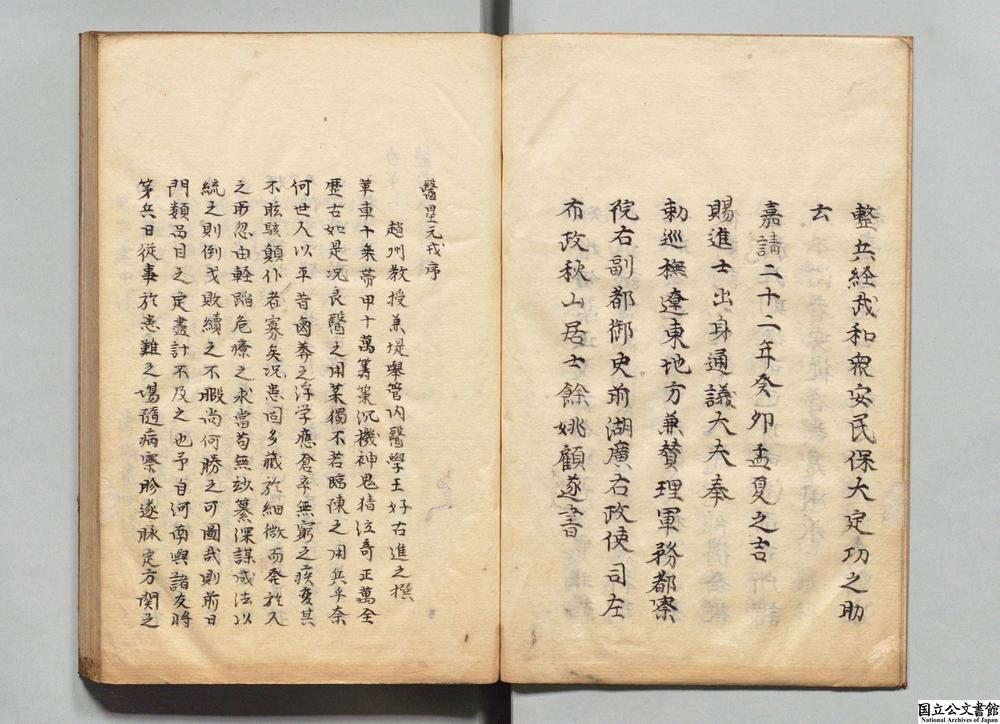 整兵経武和衆安民保大定功之助
云
嘉靖二十二年癸卯孟夏之吉
賜進士出身通議大夫奉
勅巡撫遼東地方兼賛理軍務都察
院右副都御史前湖廣右政使司左
布政秋山居士餘姚顧遂書
醫壘元戎序
趙州教授兼提舉管内醫學王好古進之撰
革車千乗帯甲十萬筭策沉機神鬼猜泣奇正萬全
歴古如是况良醫之用薬獨不若臨陳之用兵乎奈
何世人以平昔鹵莽之浮学應倉卒無窮之疾變其
不眩駭顛仆者寡矣况患固多藏於細微而發於人
之所忽由軽蹈危療之求當苟無妙纂深謀成法以
統之則倒戈敗績之不暇尚何勝之可圖哉則前日
門類品目之定盡計不及之也予自河南與諸友將
第兵日從事於患難之塲隨病察脉逐脉定方開之
国立公文書館
National Archives of Japan